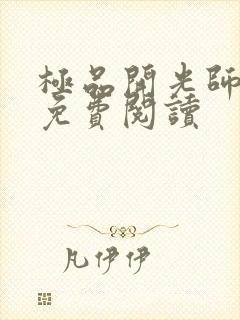 極品開光師
免費閱讀
凡伊伊